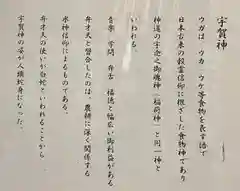 宇賀神
ウガは、ウカ、ウケ等食物を表す語で
日本古来の穀霊信仰に根ざした食物神であり
神道の宇迦之御魂神(稲荷神)と同一神と
いわれる。
音楽、学問、弁舌、福徳と幅広い御利益がある
弁才天と習合したのは、農耕に深く関係する
水神信仰によるものである。
弁才天の使いが白蛇といわれることから
宇賀神の姿が人頭蛇身になった。